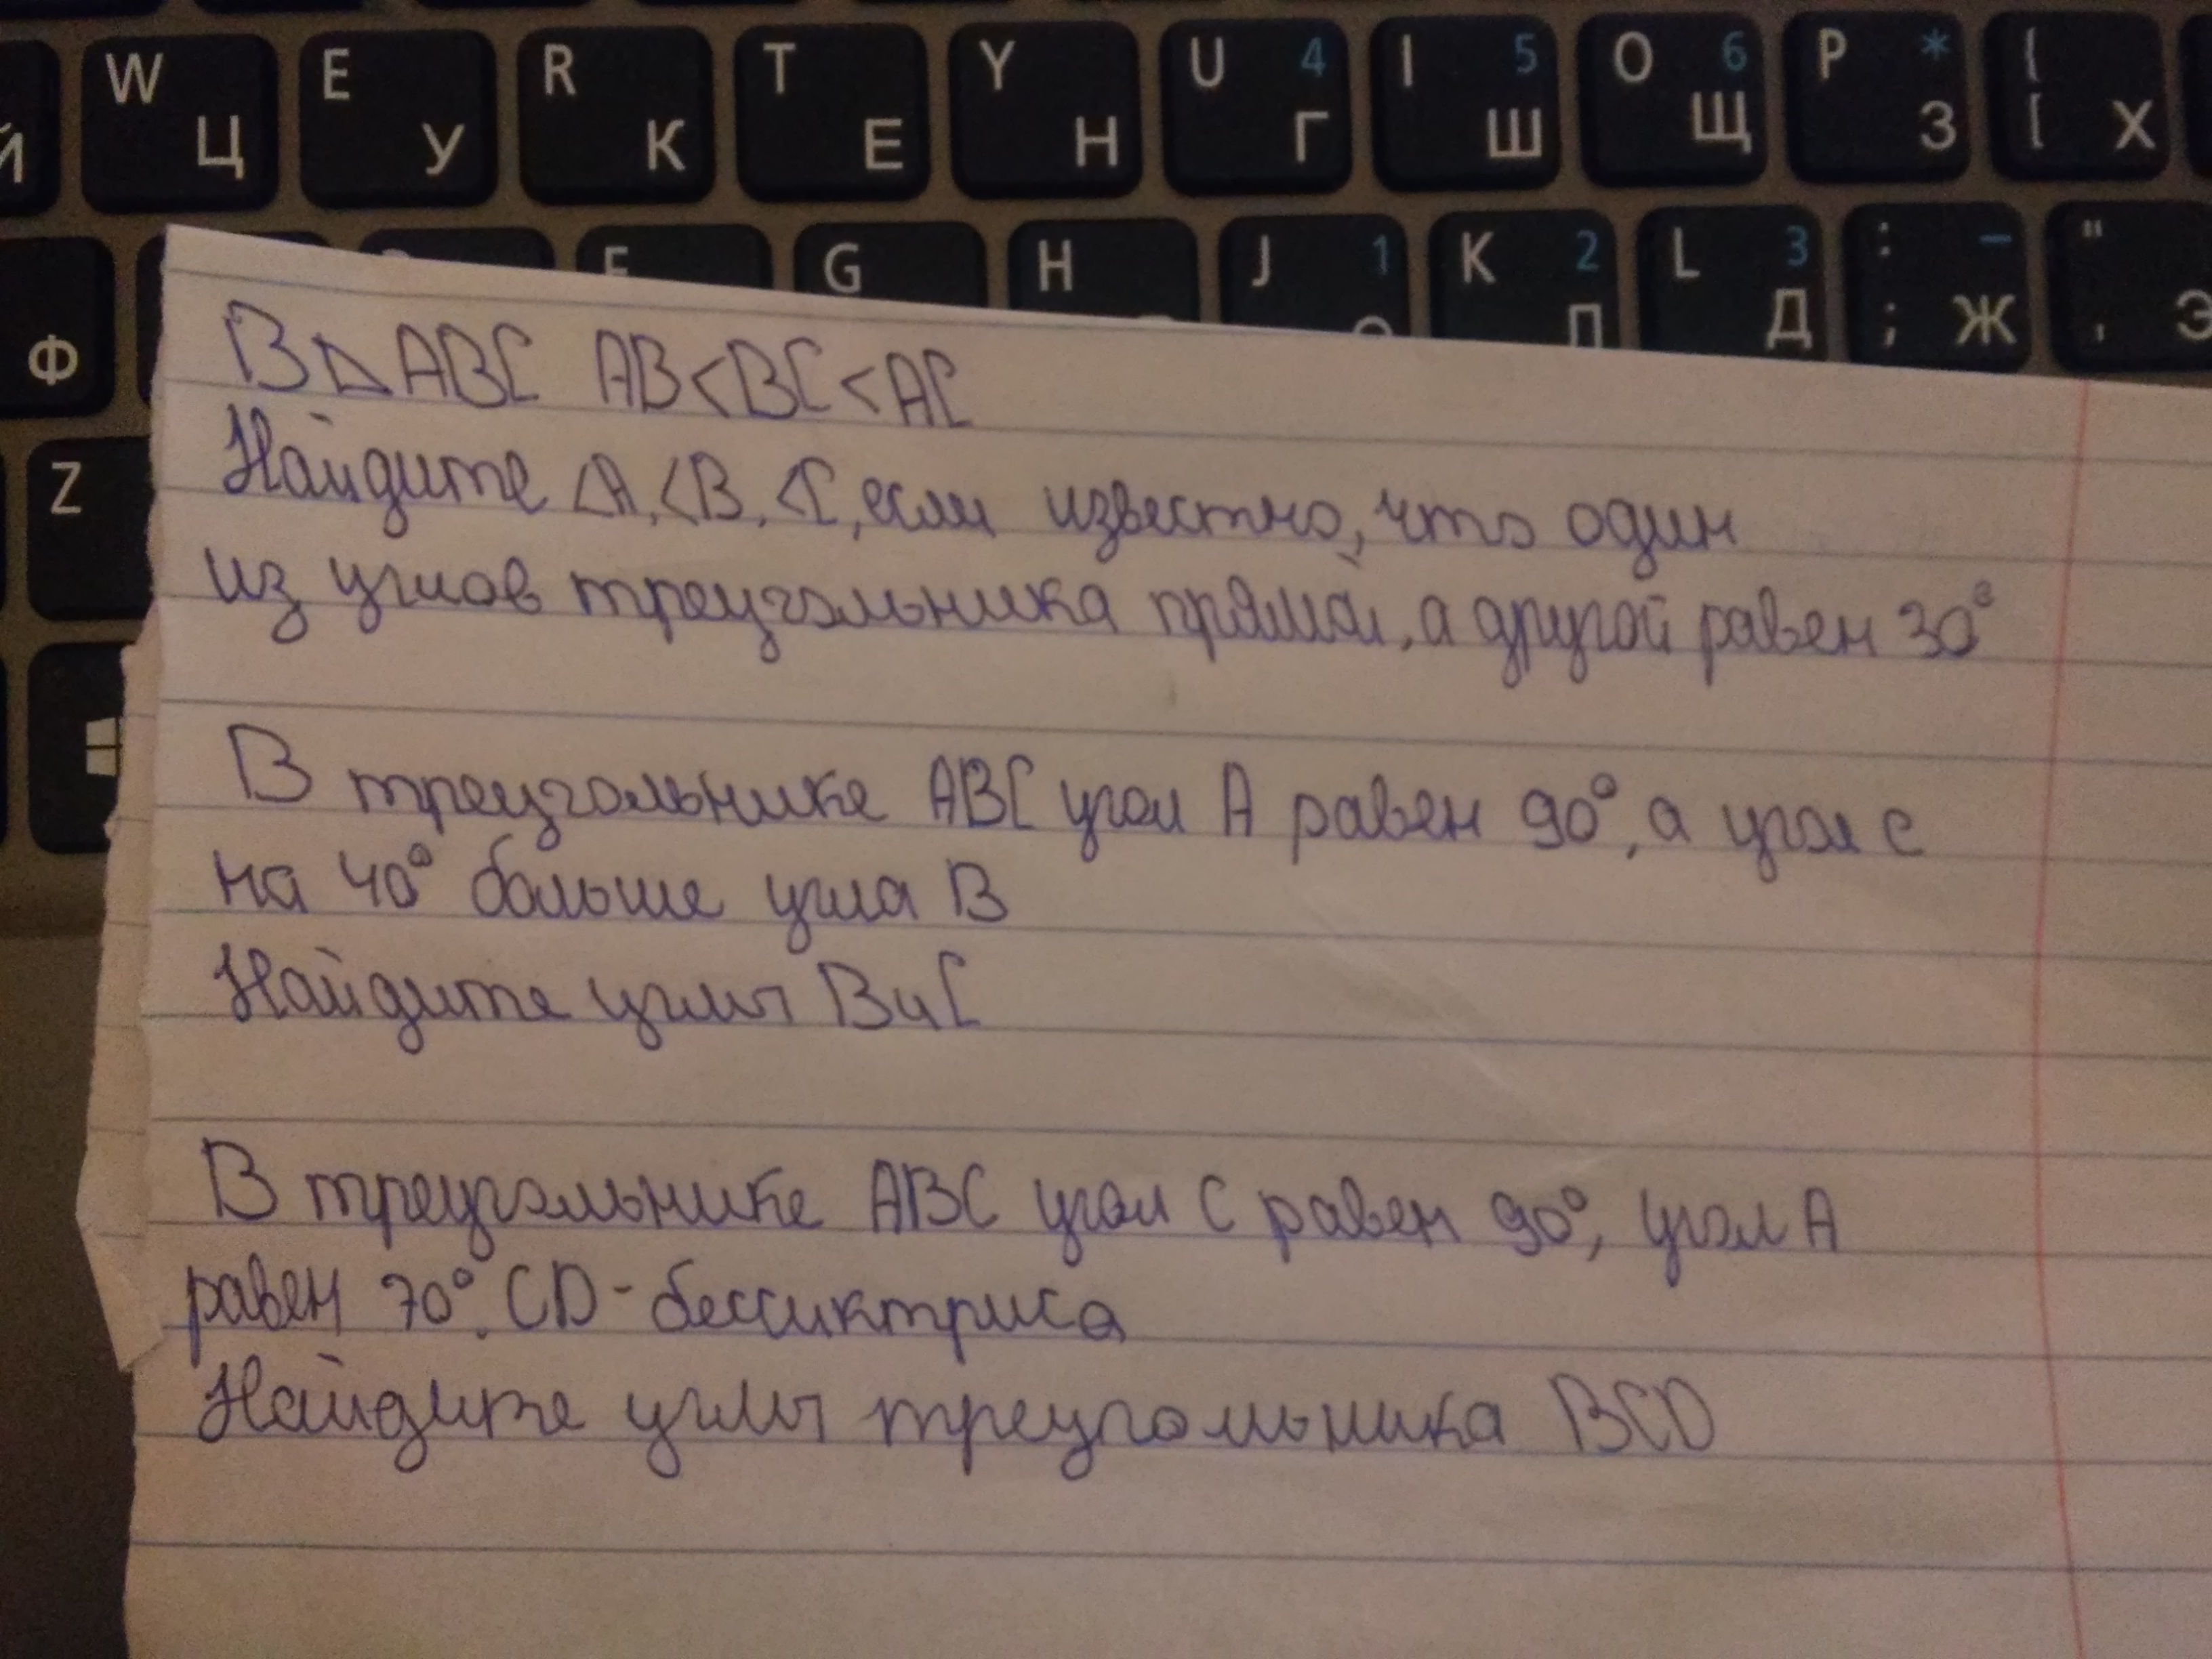 W Ц E У R К T Е Y Н U 4 Г I 5 Ш O 6 Щ P * З { [ Х
Ф F G H J 1 О K 2 Л L 3 Д : ; Ж " ' Э
Z
В △ABC AB<BC<AC
Найдите ∠A, ∠B, ∠C, если известно, что один
из углов треугольника прямой, а другой равен 30°
В треугольнике ABC угол A равен 90°, а угол C
на 40° больше угла B
Найдите углы B и C
В треугольнике ABC угол C равен 90°, угол A
равен 70°. CD - бессиктриса
Найдите углы треугольника BCD